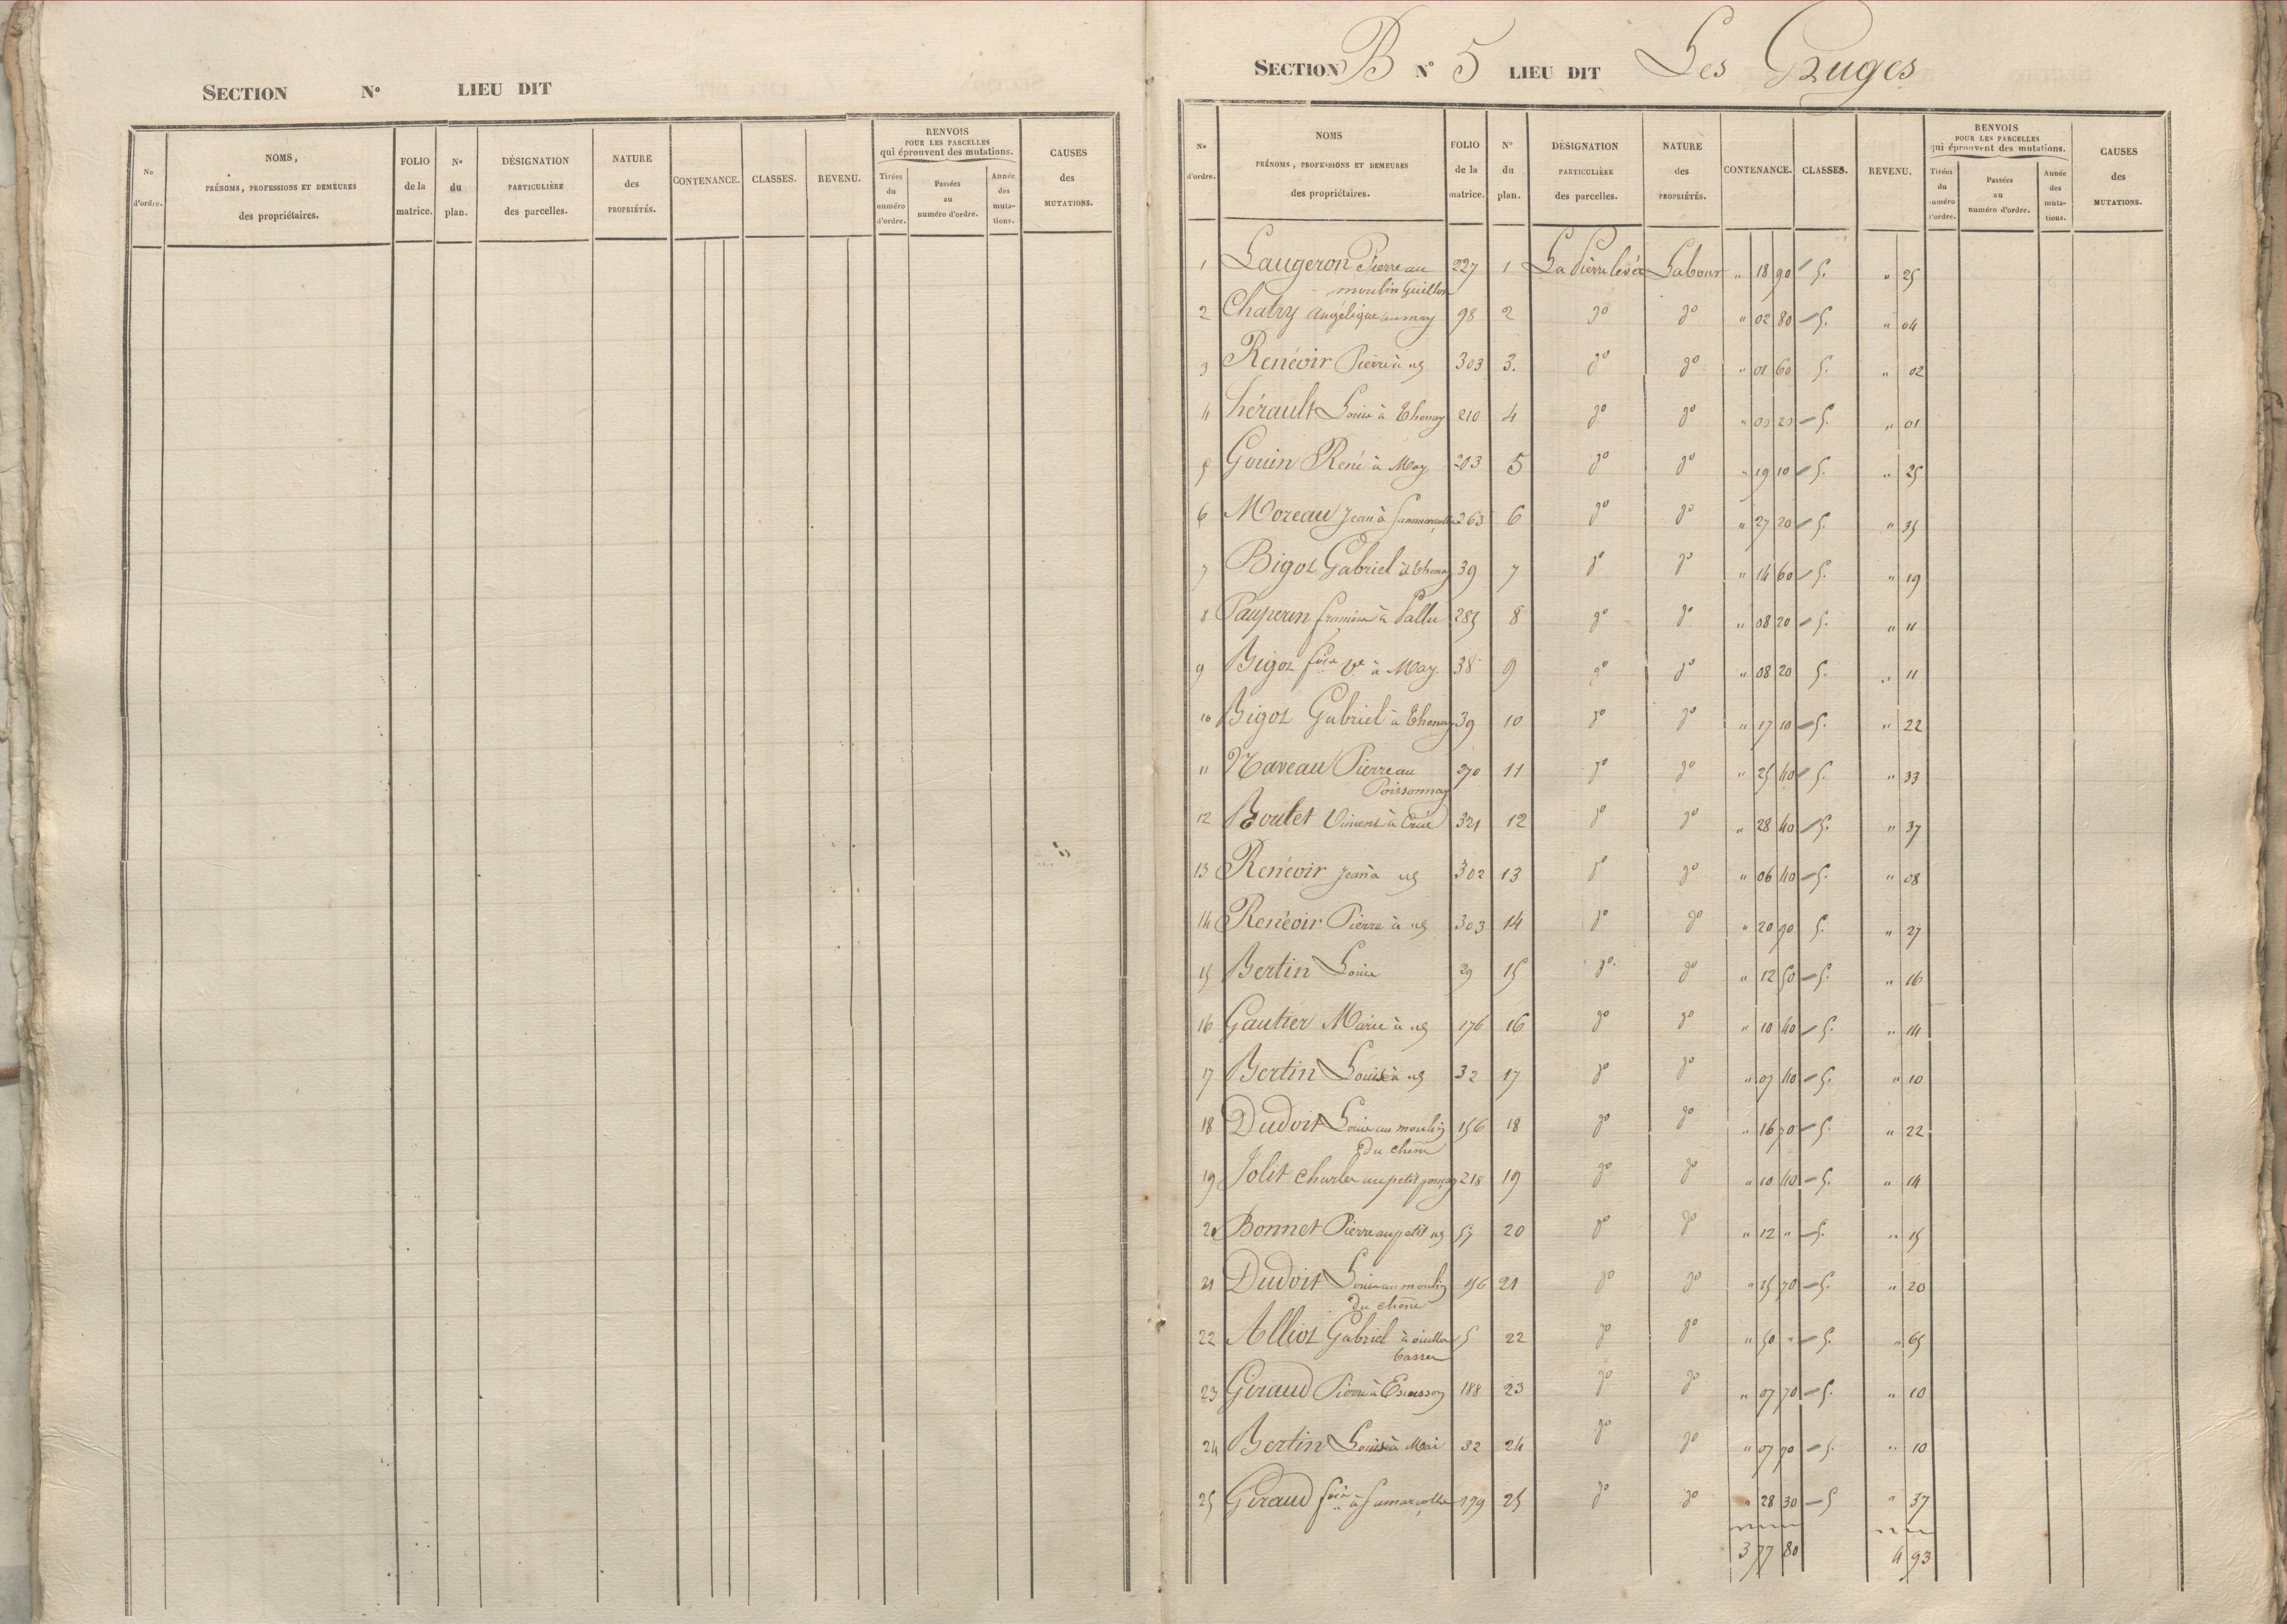 SECTION N° LIEU DIT
No d'ordre.
NOMS, PRÉNOMS, PROFESSIONS ET DEMEURES des propriétaires.
FOLIO de la matrice.
No du plan.
DÉSIGNATION PARTICULIÈRE des parcelles.
NATURE des PROPRIÉTÉS.
CONTENANCE.
CLASSES.
REVENU.
RENVOIS POUR LES PARCELLES qui éprouvent des mutations.
Tirées du numéro d'ordre.
Passées au numéro d'ordre.
Année des mutations.
CAUSES des MUTATIONS.
SECTION B N° 5 LIEU DIT Les Gruges
No d'ordre.
NOMS PRÉNOMS, PROFESSIONS ET DEMEURES des propriétaires.
FOLIO de la matrice.
N° du plan.
DÉSIGNATION PARTICULIÈRE des parcelles.
NATURE des PROPRIÉTÉS.
CONTENANCE.
CLASSES.
REVENU.
RENVOIS POUR LES PARCELLES qui éprouvent des mutations.
Tirées du numéro d'ordre.
Passées au numéro d'ordre.
Année des mutations.
CAUSES des MUTATIONS.
1 Laugeron Pierre au 227 1 La Pierre levée Labour " 18 90 5. " 25
moulin Guillon
2 Chatry Angélique au may 98 2 do do " 02 80 5. " 04
3 Renéoir Pierre à 303 3. do do " 01 60 5. " 02
4 hérault Louis à Thenay 210 4 do do " 5. " 01
5 Gouin René à May 203 5 do do " 19 10 5. " 25
6 Moreau Jean à 263 6 do do " 27 20 5. " 35
7 Bigot Gabriel à Thenay 39 7 do do " 14 60 5. " 19
8 Pauperin à Pallu 285 8 do do " 08 20 5. " 11
9 Bigot fois Ve à May 38 9 do do " 08 20 5. " 11
10 Bigot Gabriel à Thenay 39 10 do do " 17 10 5. " 22
11 Naveau Pierre au 270 11 do do " 25 40 5. " 33
Poissonnay
12 Boutet Vincent à 321 12 do do " 28 40 5. " 37
13 Renéoir Jean à 302 13 do do " 06 40 5. " 08
14 Renéoir Pierre à 303 14 do do " 20 90 5. " 27
15 Bertin Louis 29 15 do do " 12 50 5. " 16
16 Gautier Marie à 176 16 do do " 10 40 5. " 14
17 Bertin Louis à 32 17 do do " 07 40 5. " 10
18 Dudoit Louis au moulin 156 18 do do " 16 70 5. " 22
du chêne
19 Jolit Charles au petit 218 19 do do " 10 40 5. " 14
20 Bonnet Pierre au petit 57 20 do do " 12 " 5. " 15
21 Dudoit Louis au moulin 156 21 do do " 15 70 5. " 20
du chêne
22 Alliot Gabriel à 5 22 do do " 50 " 5. " 65
basses
23 Giraud Pierre à 188 23 do do " 07 70 5. " 10
24 Bertin Louis à Mai 32 24 do do " 07 70 5. " 10
25 Giraud fois à Samarcolles 179 25 do do " 28 30 5 " 37
3 77 80 4 93